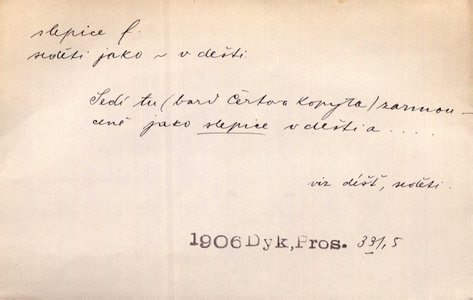 slepice f.
seděti jako ~ v dešti.
Sedí tu (bard Čertova kopyta) zarmou-
ceně jako slepice v dešti a .....
viz déšť, seděti.
1906 Dyk, Pros. 391,5